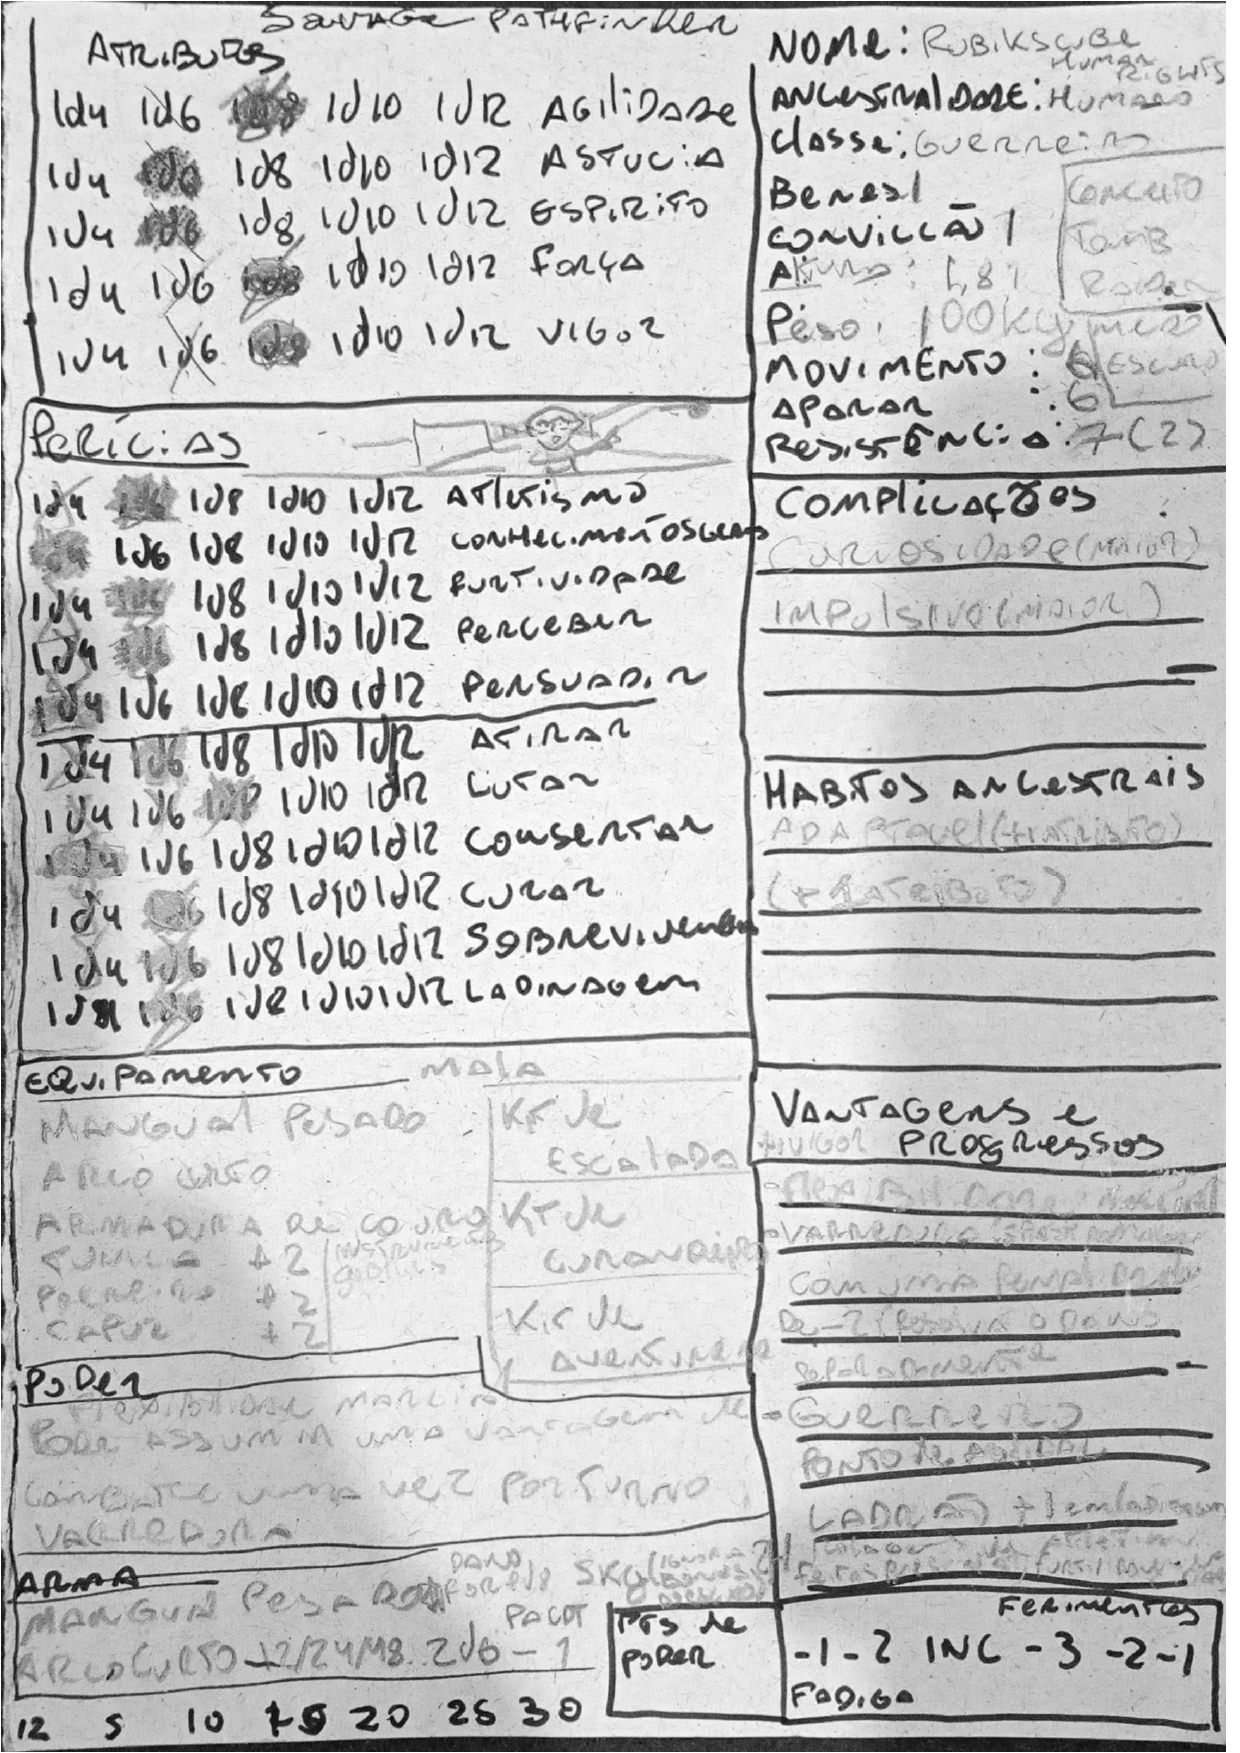 Savage Pathfinder
Atributos
1d4 1d6 1d8 1d10 1d12 Agilidade
1d4 1d6 1d8 1d10 1d12 Astucia
1d4 1d6 1d8 1d10 1d12 Espirito
1d4 1d6 1d8 1d10 1d12 Força
1d4 1d6 1d8 1d10 1d12 Vigor
Nome: Rubikscube
Human Rights
Ancestralidade: Humano
Classe: Guerreiro
Benes 1
Convicção 1
Altura: 1,81
Peso: 100kg
Movimento: 6
Aparar: 6
Resistência: 7(2)
Escuro
Perícias
1d4 1d6 1d8 1d10 1d12 Atletismo
1d4 1d6 1d8 1d10 1d12 Conhecimentos Gerais
1d4 1d6 1d8 1d10 1d12 Furtividade
1d4 1d6 1d8 1d10 1d12 Perceber
1d4 1d6 1d8 1d10 1d12 Persuadir
1d4 1d6 1d8 1d10 1d12 Atirar
1d4 1d6 1d8 1d10 1d12 Lutar
1d4 1d6 1d8 1d10 1d12 Consertar
1d4 1d6 1d8 1d10 1d12 Curar
1d4 1d6 1d8 1d10 1d12 Sobrevivencia
1d4 1d6 1d8 1d10 1d12 Ladinagem
Complicações
Curiosidade (maior)
Impulsivo (maior)
Habitos Ancestrais
Adaptavel
Equipamento
Mangual Pesado
Arco Curto
Armadura de couro
Tunica +2
Perneira +2
Capuz +2
Mala
Kit de
Escalada
Kit de
Curandeiro
Kit de
Aventureiro
Vantagens e
Progressos
+Vigor
-Flexibilidade Marcial
-Varredura
com uma
de -2
separadamente
-Guerreiro
Ladrão
Poder
Flexibilidade Marcial
Pode assumir uma vantagem de
combate uma vez por turno
Varredura
Arma
Mangual Pesado
Dano
Arco Curto 12/24/48 2d6 - 1
Pts de
Poder
Ferimentos
-1 -2 INC -3 -2 -1
Fadiga
12 5 10 15 20 25 30